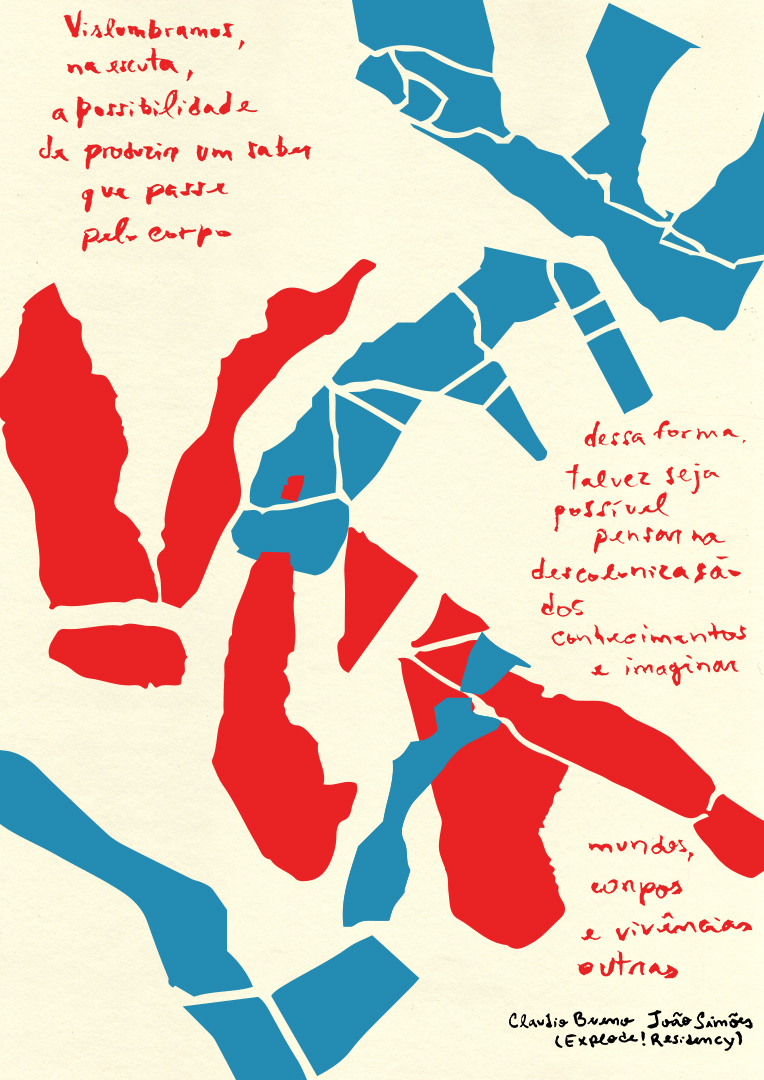 Vislombramos,
na escuta,
a possibilidade
de produzir um saber
que passe
pelo corpo
dessa forma,
talvez seja
possível
pensar na
descolonização
dos
conhecimentos
e imaginar
mundos,
corpos
e vivências
outras
Claudio Bueno João Simões
(Explode! Residency)